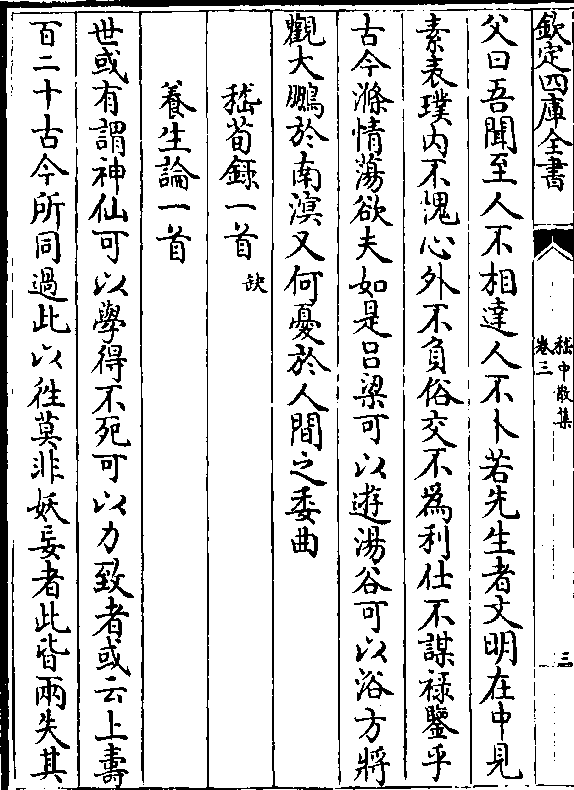 欽定四庫全書
嵇中散集
卷三
三
父曰吾聞至人不相達人不卜若先生者文明在中見
素表璞内不愧心外不負俗交不為利仕不謀禄鑒乎
古今滌情蕩欲夫如是吕梁可以遊湯谷可以浴方將
觀大鵬於南溟又何憂於人間之委曲
嵇荀録一首缺
養生論一首
世或有謂神仙可以學得不死可以力致者或云上壽
百二十古今所同過此以徃莫非妖妄者此皆兩失其